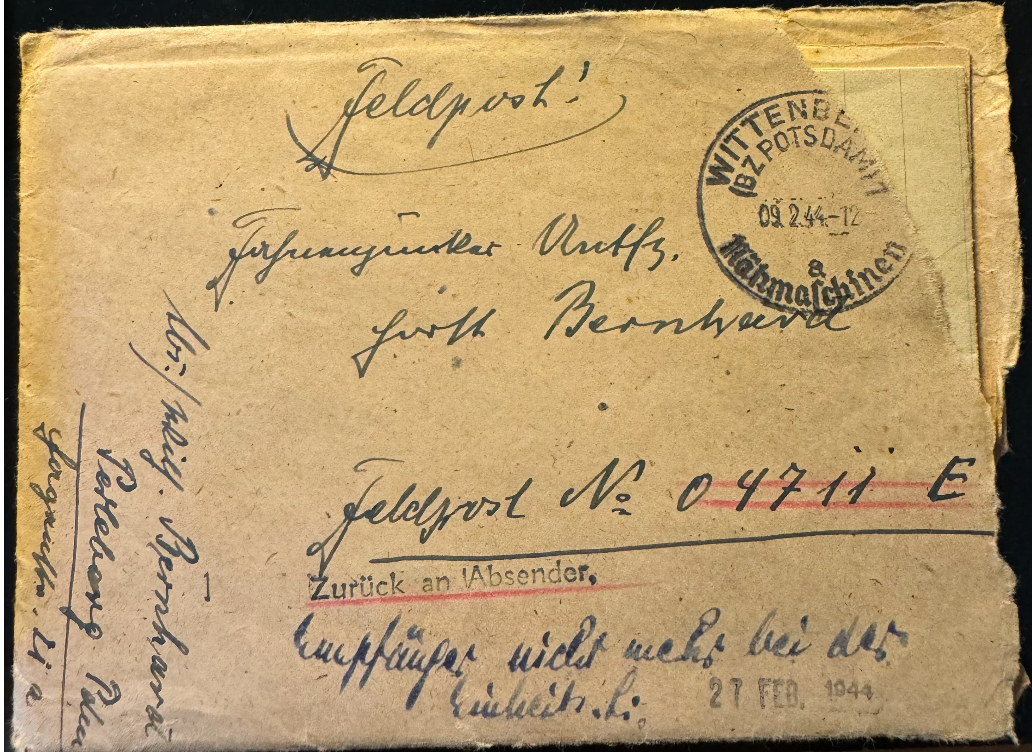 Feldpost!
WITTENBE
(BZ POTSDAM)
09.2.44.-12
a
Nähmaschinen
Fahnenjunker Untfz.
Horst Bernhard
Feldpost No 04711 E
Zurück an Absender.
Empfänger nicht mehr bei der
Einheit.
27 FEB. 1944
Abs./ Bernhard
Perleberg